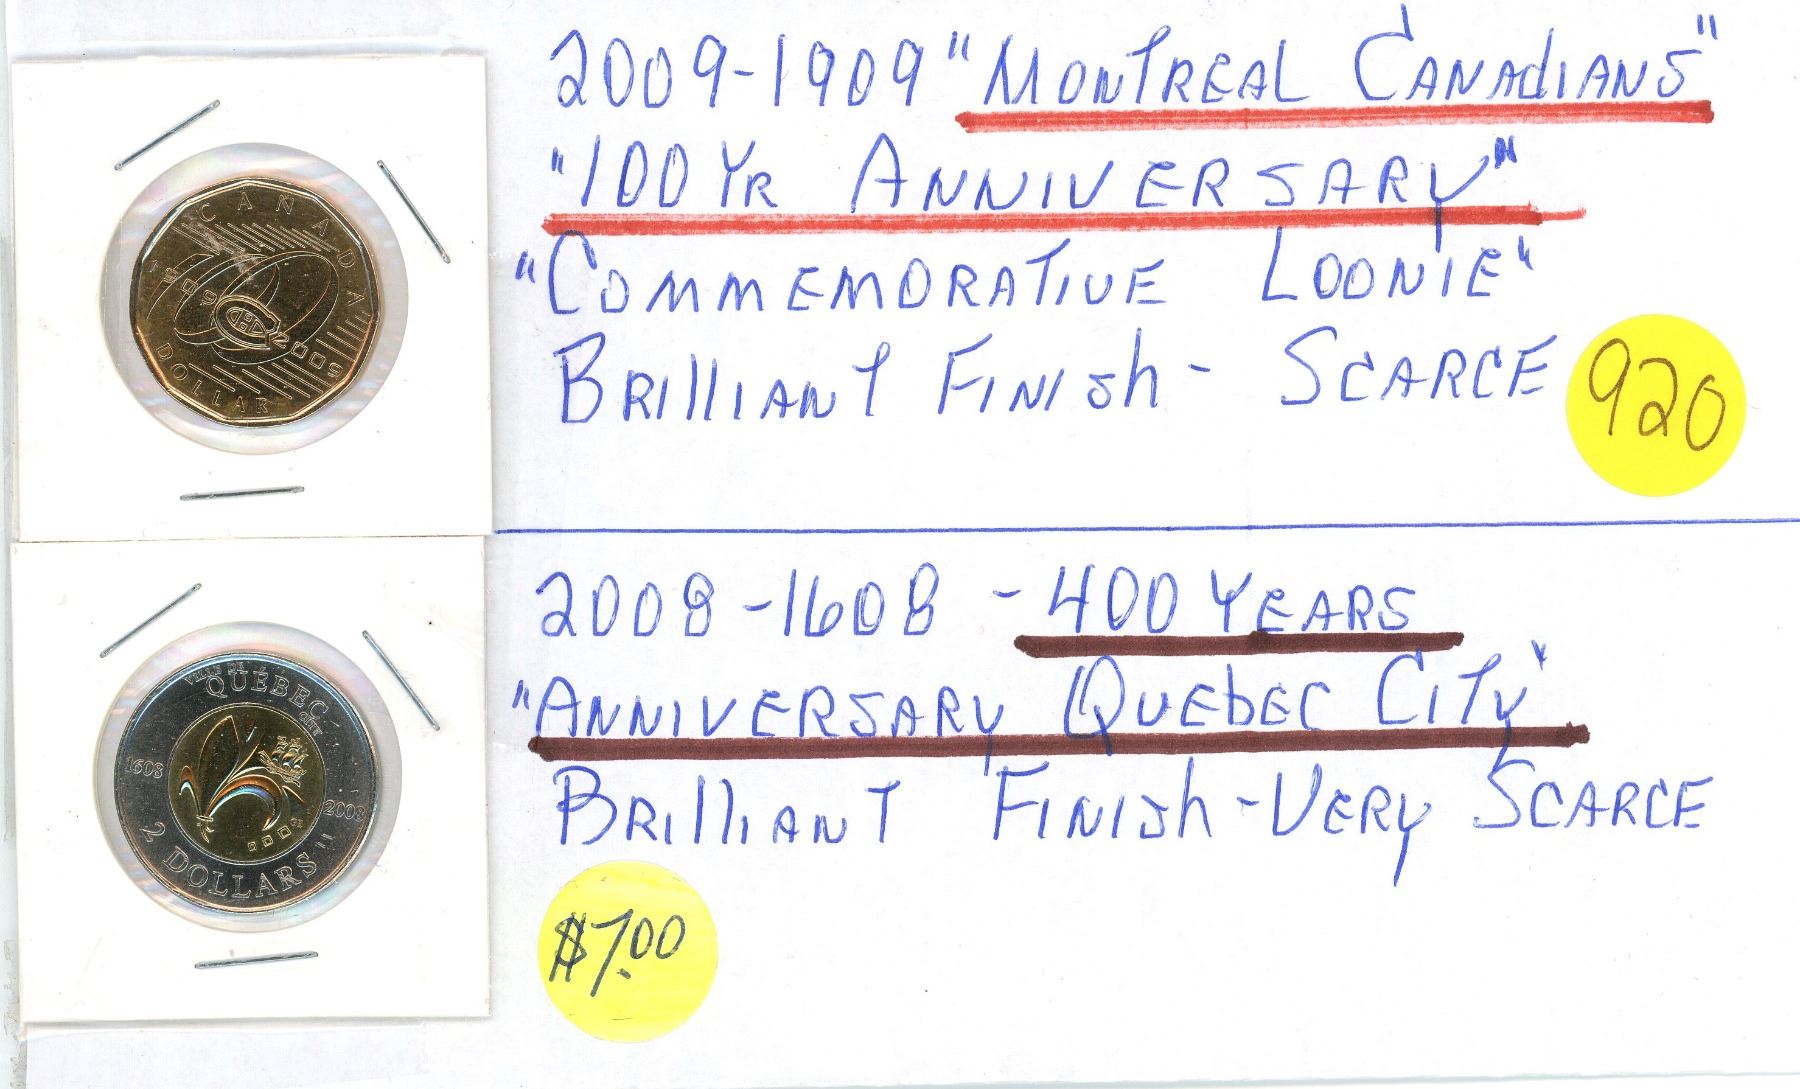 2009-1909 "MONTREAL CANAdIANS"
"100 YR ANNIVERSARY"
"COMMEMORATIVE LOONIE"
BRIllIANT FINISh - SCARCE
920
CANADA
1909
2009
DOLLAR
2008-1608 - 400 YEARS
"ANNIVERSARY QUEbEC CITY"
BRIllIANT FINISh - VERY SCARCE
$7.00
VILLE DE
QUÉBEC
CITY
1608
2008
2 DOLLARS